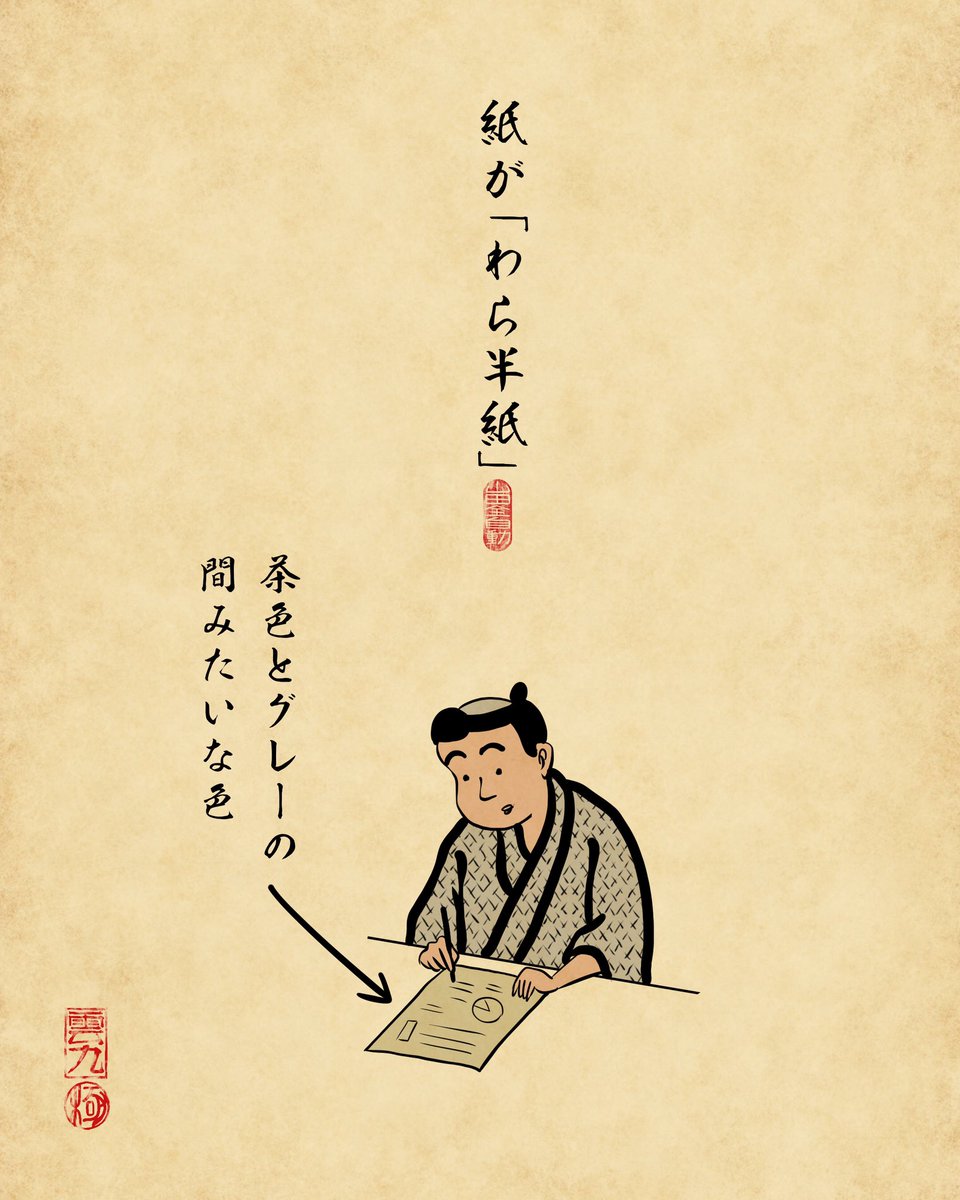 紙が「わら半紙」
茶色とグレーの
間みたいな色